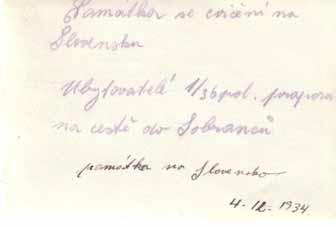 Památka se cvičení na
Slovensku
Ubytovatelé 1/36 pol. praporu
na cestě do Sobranců
památka na Slovensko
4-12-1934.